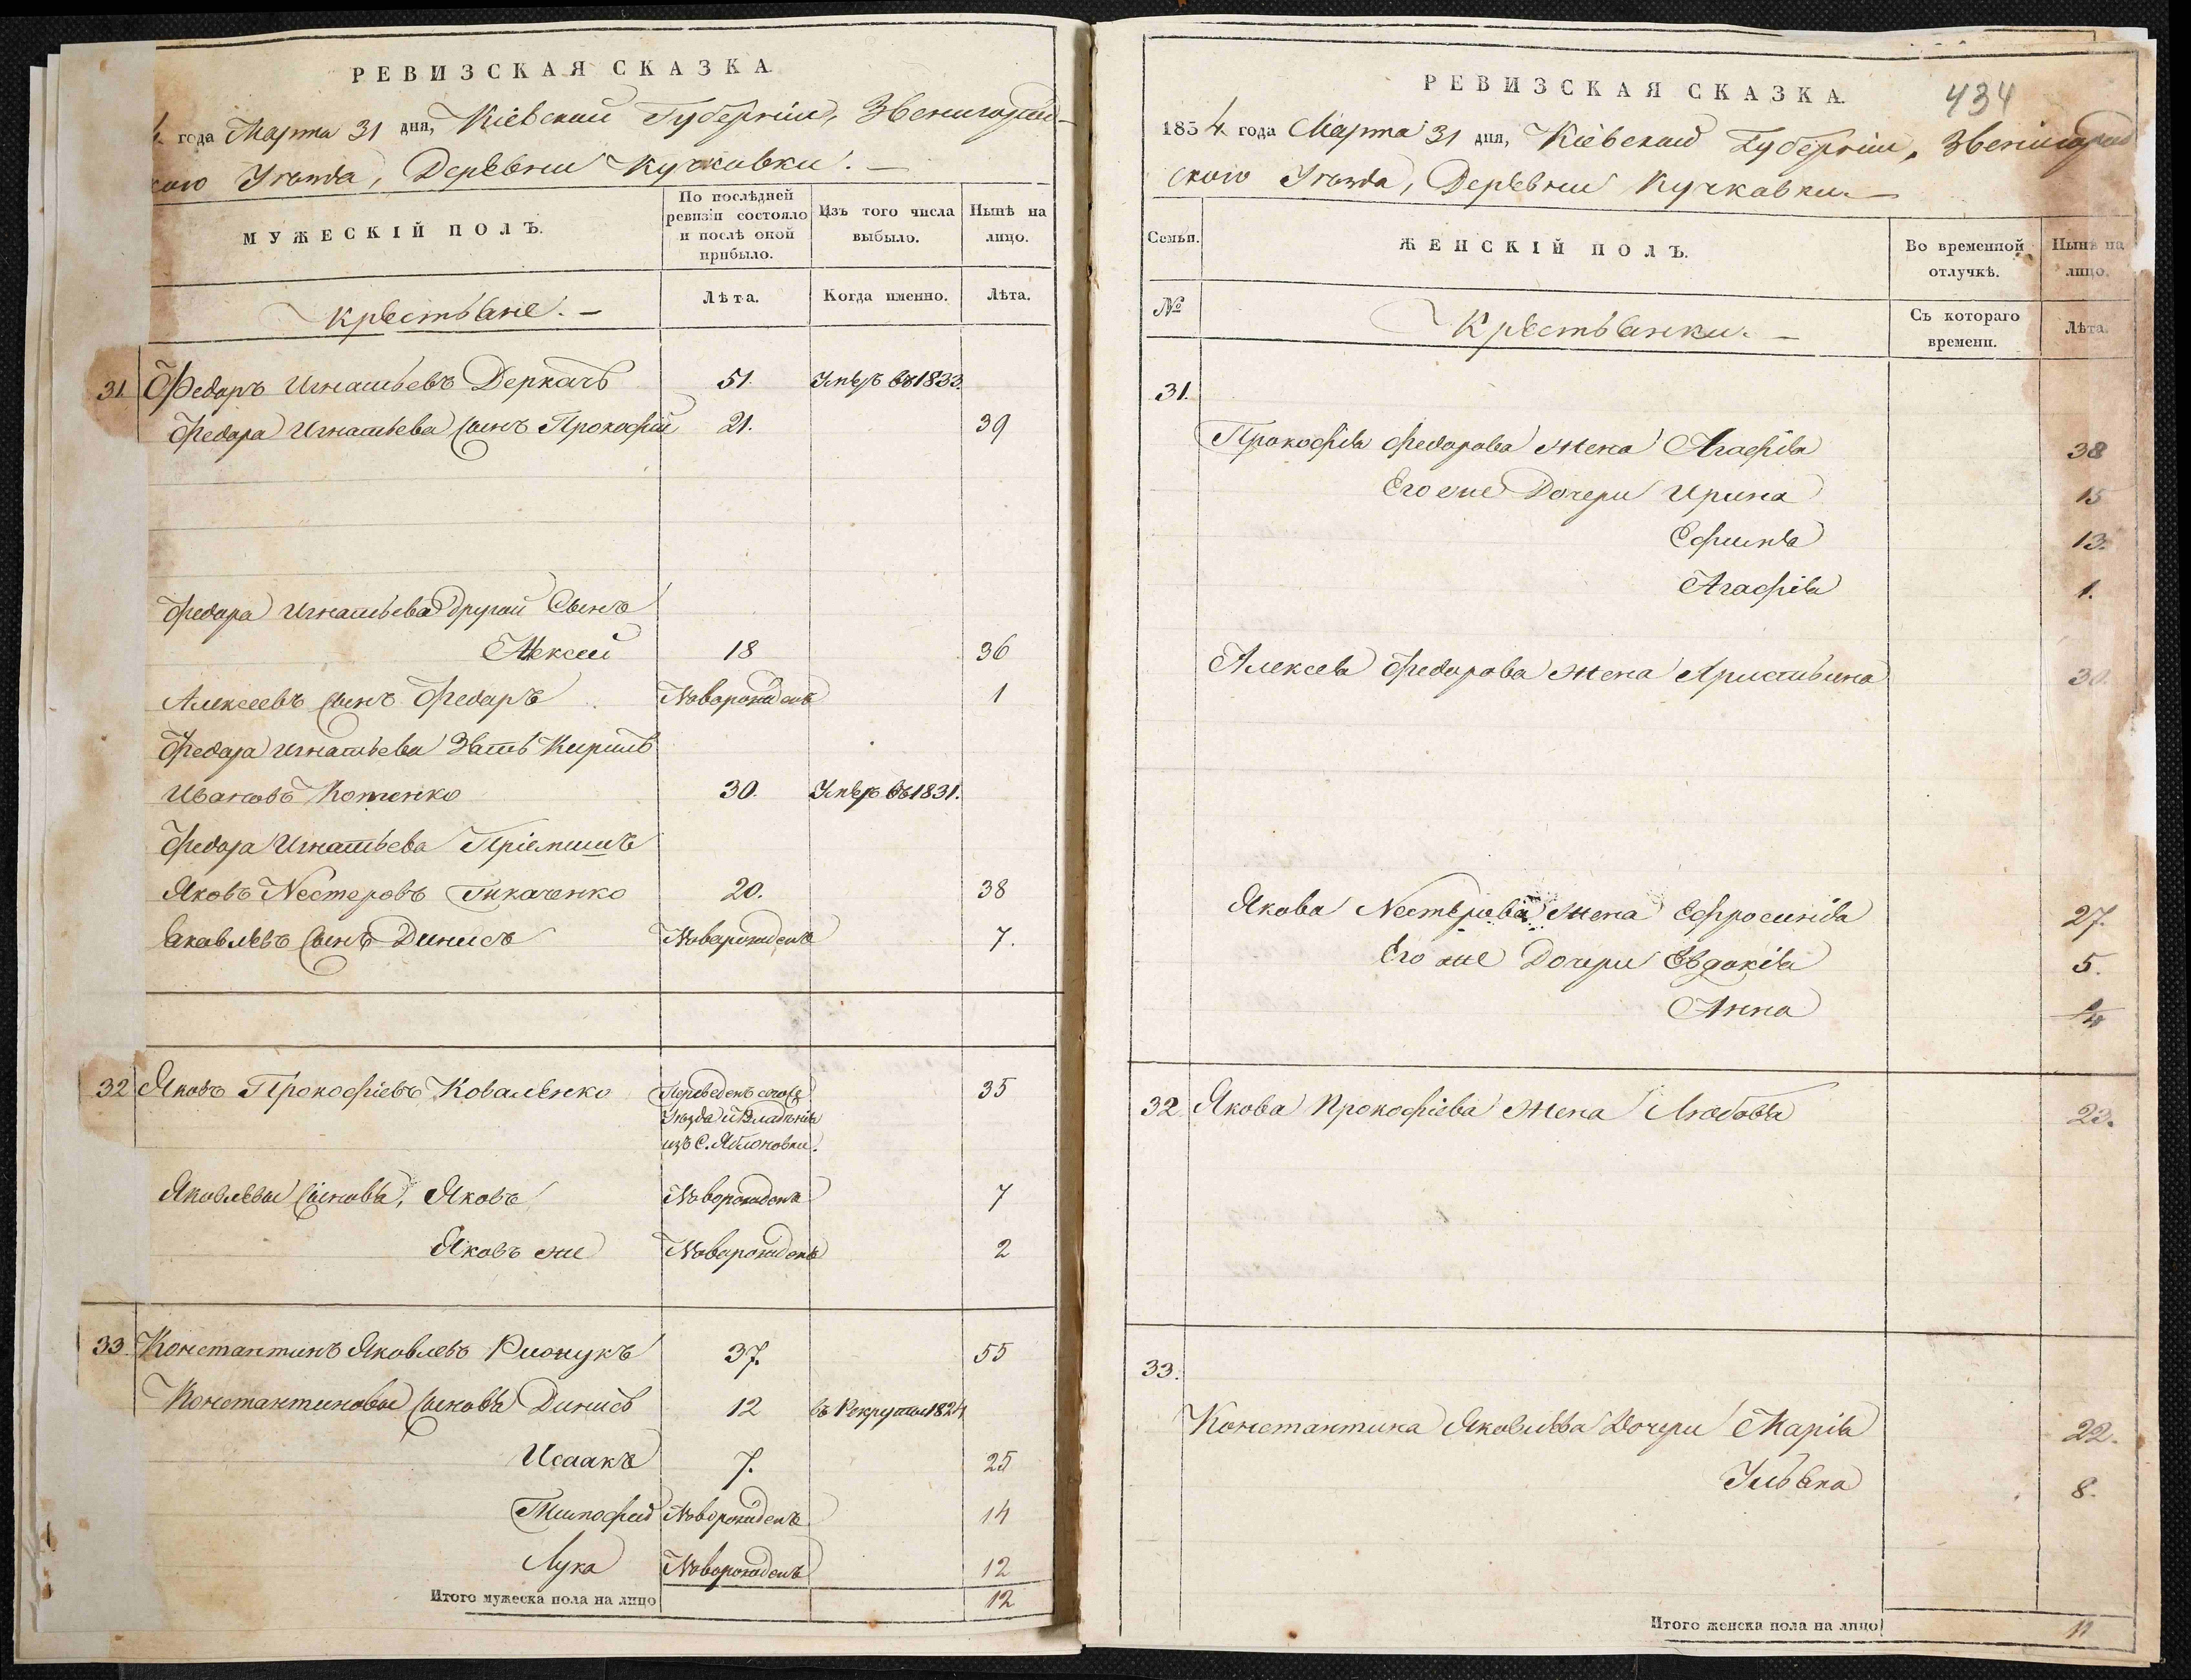 РЕВИЗСКАЯ СКАЗКА
года Марта 31 дня, Кіевской Губерніи, Звенигород-
ского Уезда, Деревни Кучковки. —
МУЖЕСКІЙ ПОЛЪ.
По послѣдней ревизіи состояло и послѣ оной прибыло.
Изъ того числа выбыло.
Нынѣ на лицо.
Крестьяне. —
Лѣта.
Когда именно.
Лѣта.
31 Федоръ Игнатьевъ Деркачъ 51. Умеръ въ 1833.
Федора Игнатьева сынъ Прокофій 21. 39
Федора Игнатьева другой Сынъ
Алексей 18 36
Алексеевъ сынъ Федоръ Новорожденъ 1
Федора Игнатьева Зять Кирилъ
Ивановъ 30. Умеръ въ 1831.
Федора Игнатьева Пріемышъ
Яковъ Нестеровъ Ткаченко 20. 38
Яковлевъ сынъ Динисъ Новорожденъ 7.
32 Яковъ Прокофіевъ Коваленко Переведенъ сего 35
Уезда и Владенія
изъ С. Яблоновки.
Яковлевы сыновья, Яковъ Новорожденъ 7
Яковъ же Новорожденъ 2
33. Константинъ Яковлевъ 37. 55
Константиновы сыновья Динисъ 12 въ Рекруты 1824
Исаакъ 7. 25
Тимофей Новорожденъ 14
Лука Новорожденъ 12
Итого мужеска пола на лицо 12
РЕВИЗСКАЯ СКАЗКА.
434
1834 года Марта 31 дня, Кіевской Губерніи, Звенигород
ского Уезда, Деревни Кучковки. —
Семьи.
ЖЕНСКІЙ ПОЛЪ.
Во временной отлучкѣ.
Нынѣ на лицо.
№
Крестьянки. —
Съ котораго времени.
Лѣта.
31.
Прокофія Федорова жена Агафія 38
Его же Дочери Ирина 15
Ефимія 13.
Агафія 1.
Алексея Федорова жена 30.
Якова Нестерова жена Ефросинія 27.
Его же Дочери Евдокія 5.
Анна 1/4
32 Якова Прокофіева жена Любовь 23.
33.
Константина Яковлева Дочери Марія 22.
Ульяна 8.
Итого женска пола на лицо 11